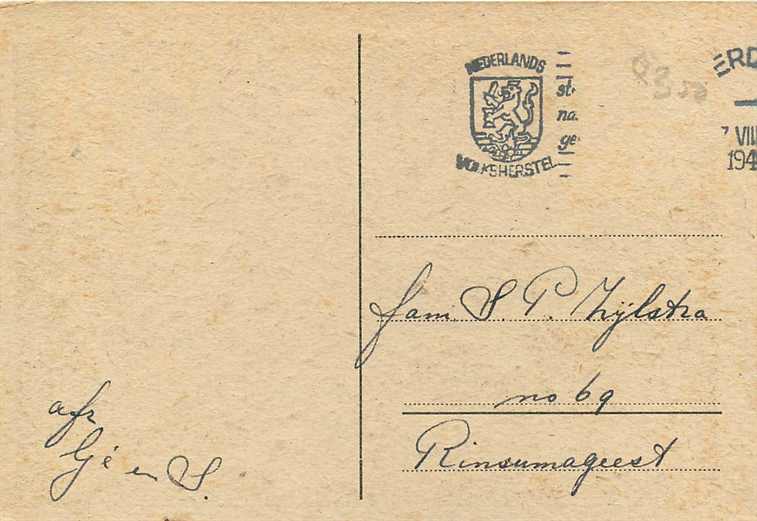 NEDERLANDS
VOLKSHERSTEL
st.
na.
ge.
ERD
7 VIII
194
fam S. P. Zijlstra
no 69
Rinsumageest
afz
Gé en S.